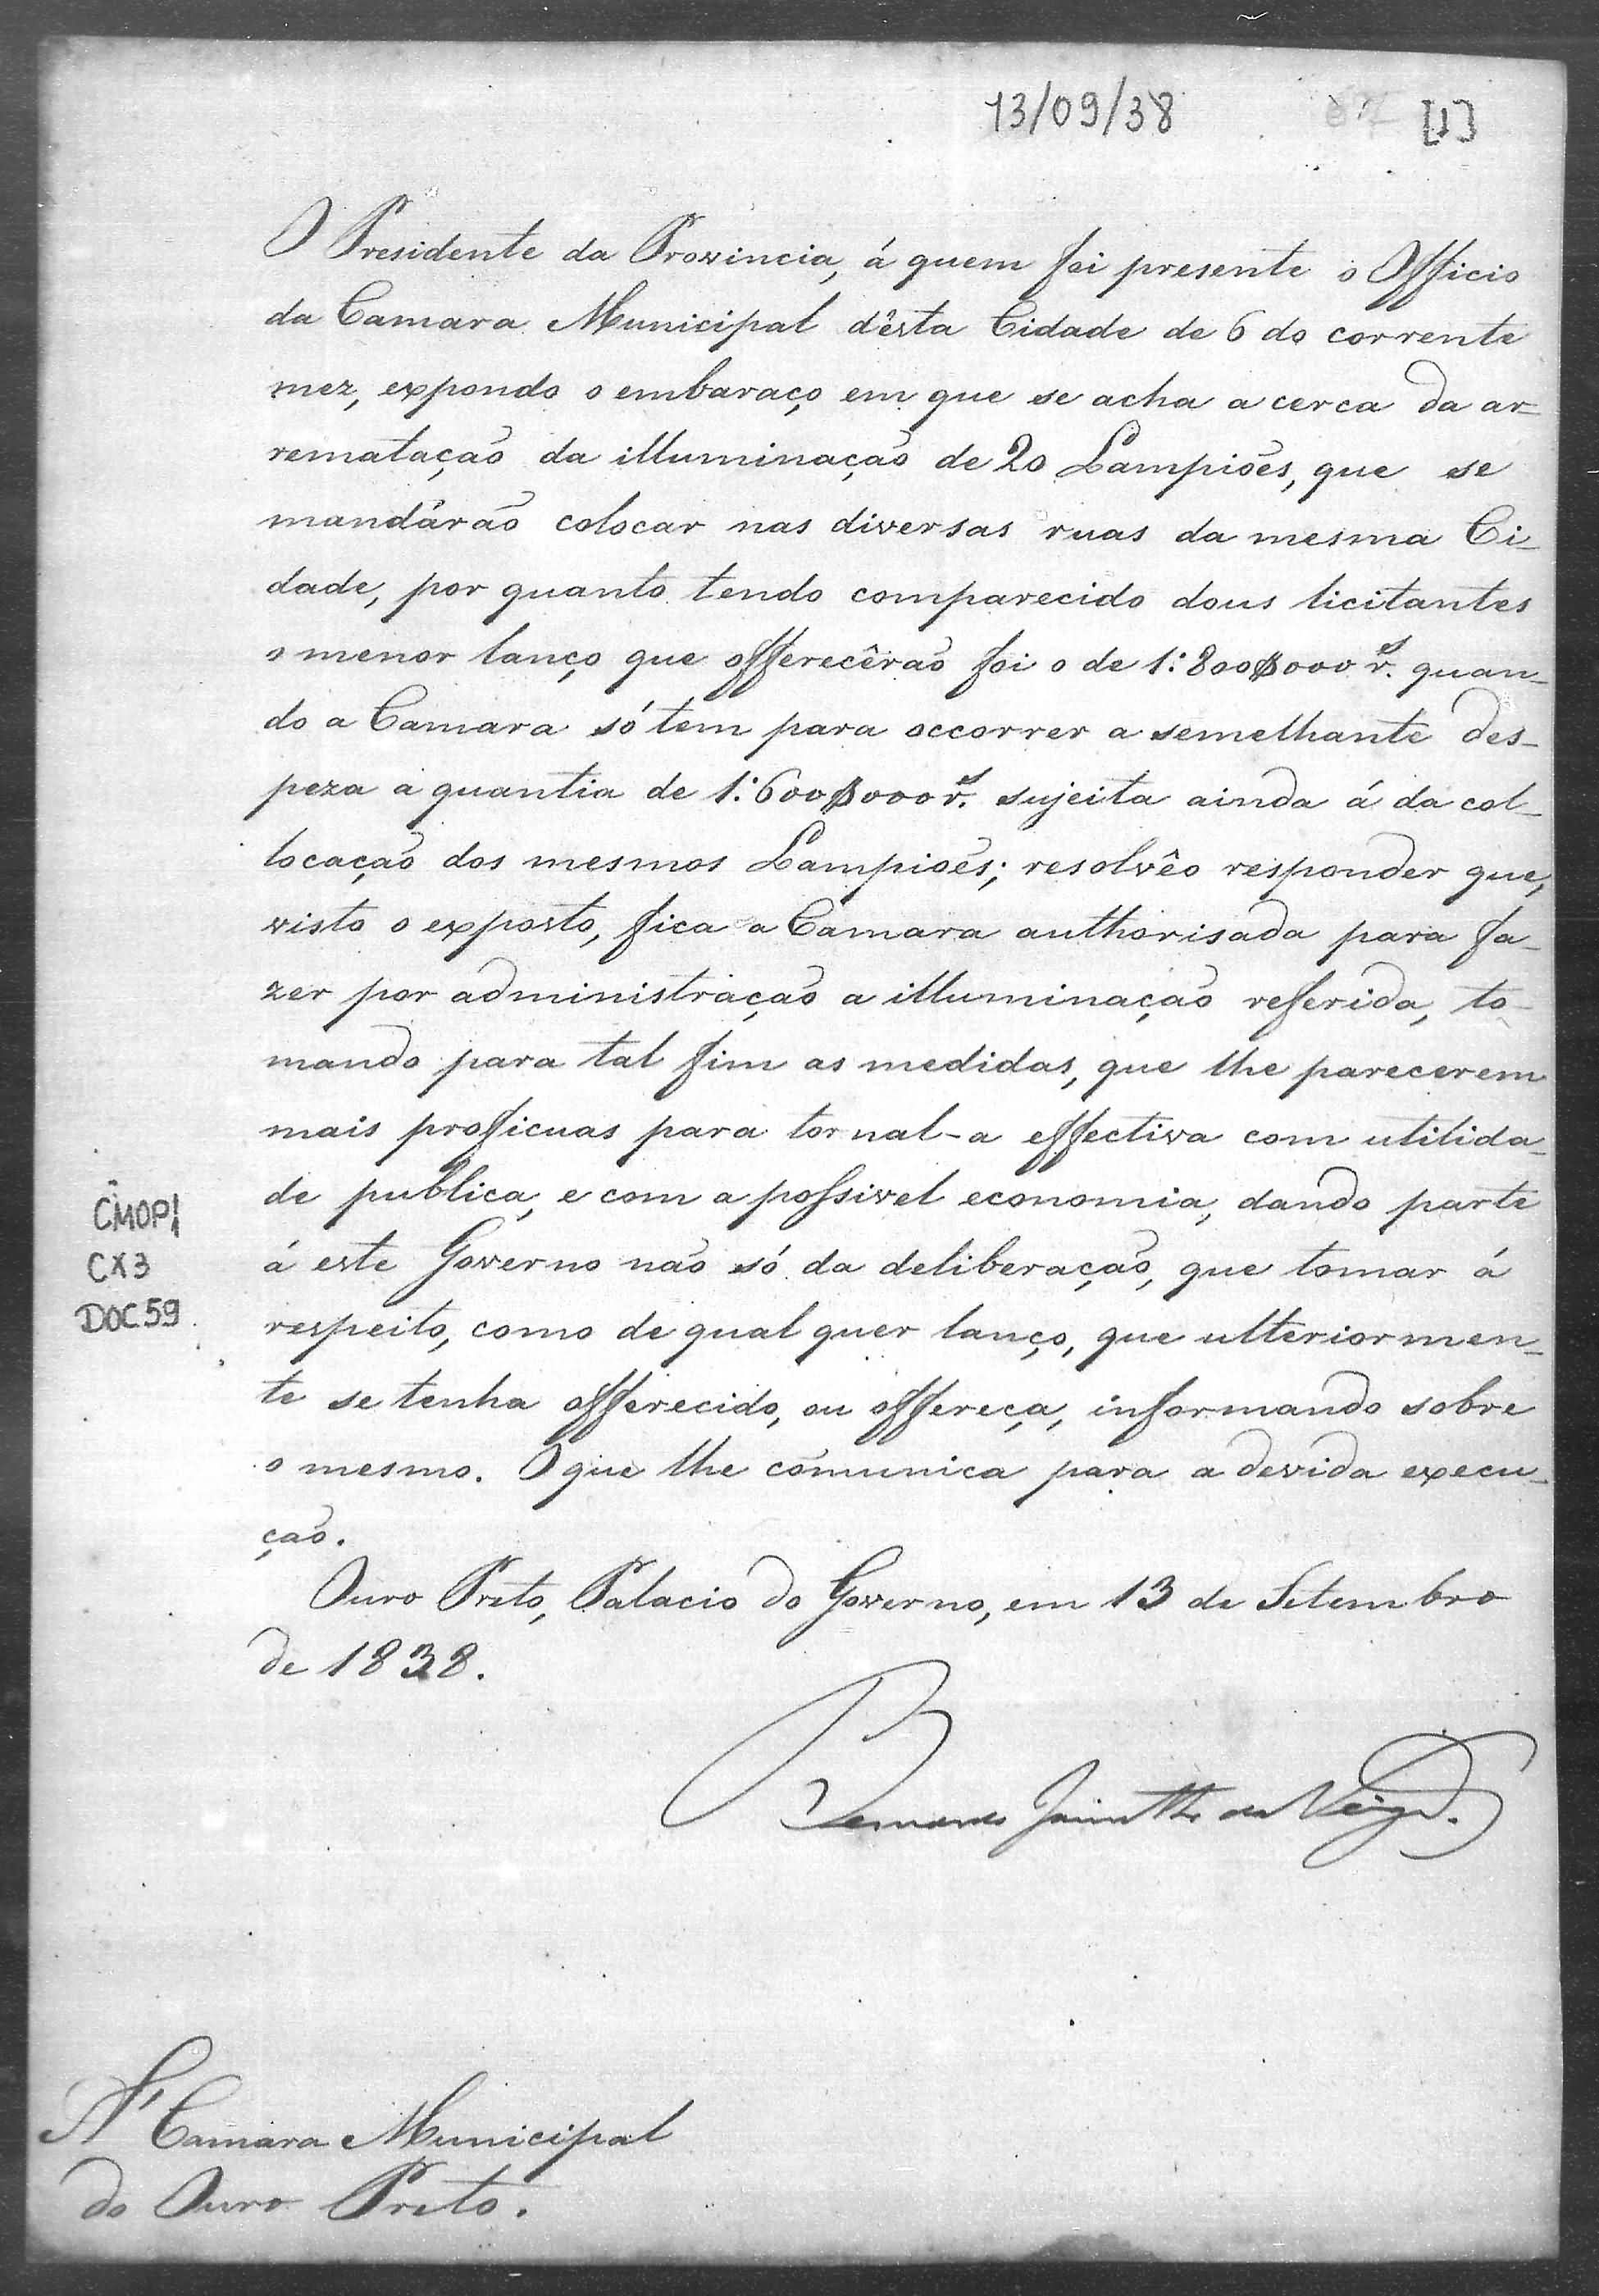 13/09/38 [1]
O Presidente da Provincia, á quem foi presente o Officio
da Camara Municipal d'êsta Cidade de 6 do corrente
mez, expondo o embaraço em que se acha a cerca da ar-
rematação da illuminação de 20 Lampiões, que se
mandárão colocar nas diversas ruas da mesma Ci-
dade, por quanto tendo comparecido dous licitantes
o menor lanço que offerecêrão foi o de 1:800$000 rs. quan-
do a Camara só tem para occorrer a semelhante des-
peza a quantia de 1:600$000 rs. sujeita ainda á da col-
locação dos mesmos Lampiões; resolvêo responder que,
visto o exposto, fica a Camara authorisada para fa-
zer por administração a illuminação referida, to-
mando para tal fim as medidas, que lhe parecerem
mais proficuas para tornal-a effectiva com utilida-
de publica, e com a possivel economia, dando parte
á este Governo não só da deliberação, que tomar á
respeito, como de qual quer lanço, que ulteriormen-
te se tenha offerecido, ou offereça, informando sobre
o mesmo. O que lhe cõmunica para a devida execu-
ção.
Ouro Preto, Palacio do Governo, em 13 de Setembro
de 1838.
Bernardo Jacintho da Veiga.
CMOP
CX3
DOC 59
A' Camara Municipal
do Ouro Preto.